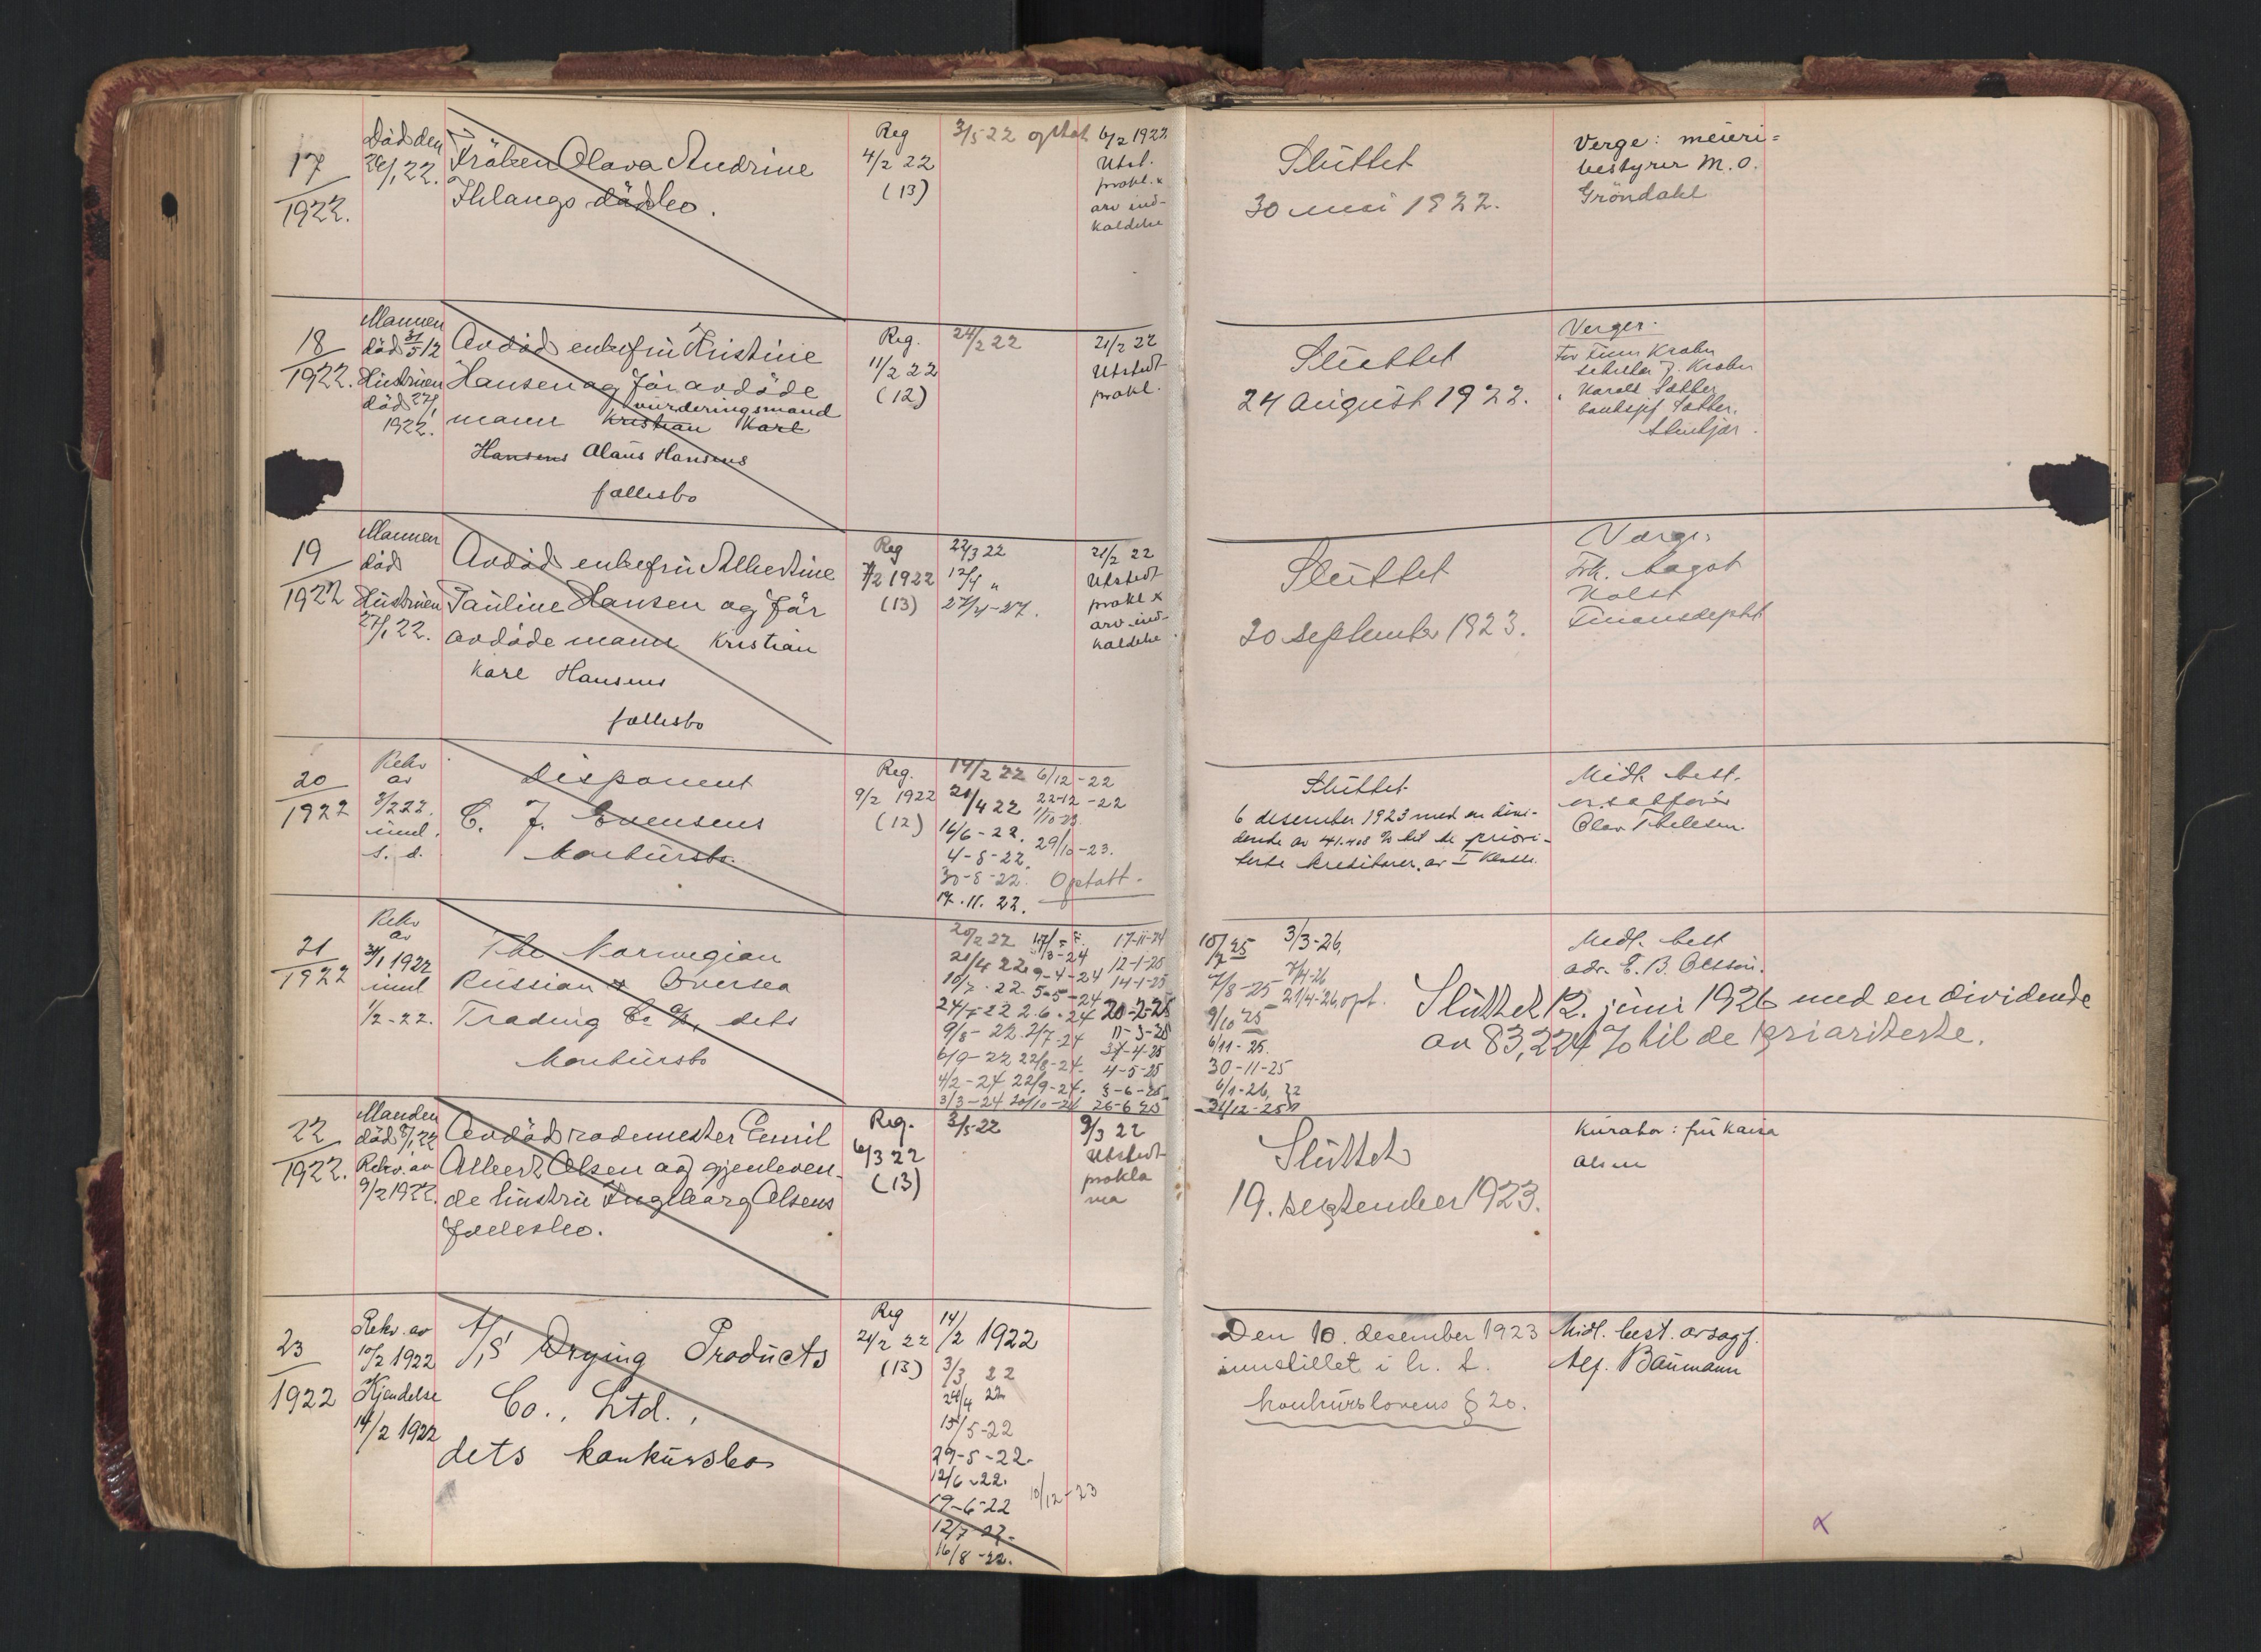 17
1922.
Död den
26/1 22.
Fröken Olava Andrine
Ihlangs dödsbo.
Reg
4/2 22
(13)
3/5 22 optat
6/2 1922
Utst.
prokl. x
arv ind-
kaldelse
Sluttet
30 mai 1922.
Verge: meieri=
bestyrer M. O.
Gröndahl
18
1922.
Mannen
död 31/5 12
Hustruen
död 27/1
1922.
Avdöd enkefru Kristine
Hansen og för avdöde
vurderingsmand
mann Kristian Karl
Hansens Olaus Hansens
fællesbo
Reg.
11/2 22
(12)
24/2 22
21/2 22
Utstedt
prokl.
Sluttet
24 august 1922.
Verger.
for Finn
Harald Sæther
Sæther,
Stenkjær.
19
1922
Mannen
död
Hustruen
27/1 22.
Avdöd enkefru Albertine
Pauline Hansen og för
avdöde mann Kristian
Karl Hansens
fællesbo
Reg
7/2 1922
(13)
22/3 22
12/4 "
27/4-27.
21/2 22
Utstedt
prokl x
arv-ind-
kaldelse.
Sluttet
20 september 1923.
Verge:
Frk. Aagot
Holst
Finansdepht
20
1922
Rekv
av
8/2 22.
iml.
s. d.
Disponent
C. J. Evensens
konkursbo.
Reg.
9/2 1922
(12)
14/2 22 6/12-22
21/4 22 22-12-22
16/6-22. 1/10-23.
4-8-22 29/10-23.
30-8-22. Optatt.
17.11.22.
Sluttet
6 desember 1923 med en divi-
dende av 41.408 % til de priori-
terte kreditorer av I klasse.
Midl. best.
o.r.sakförer
Olav Thelesen.
21
1922
Rekv
av
31/1 1922
iml
1/2-22.
The Norwegian
Russian & Oversea
Trading Co %, dets
konkursbo
20/2 22 17-11-24
21/4 22 9-4-24 12-1-25
10/7-22 5-5-24 14-1-25
24/7-22 2-6-24 20-2-25
9/8-22. 2/7-24 11-3-25
6/9-22 22/8-24. 31-4-25
4/2-24 22/9-24. 4-5-25
3/3-24 20/10-24 26-6 25
15/7 25 3/3-26,
7/8-25 7/4-26
9/10 25 21/4-26, opt.
6/11-25.
30-11-25
6/1-26,
31/12-25
Midl. best
adv. E. B. Olsson.
Sluttet 12. juni 1926 med en dividende
av 83,224 % til de prioriterte.
22
1922.
Manden
död 8/1 22
Rekv. av
9/2 1922.
Avdöd rodemester Emil
Albert Olsen og gjenleven-
de hustru Ingeborg Olsens
fællesbo.
Reg.
6/3 22
(13)
3/5-22
9/3 22
Utstedt
prokla
ma
Sluttet
19. september 1923.
Kurator: fru Kaisa
Olsen
23
1922
Rekv. av
10/2 1922
Kjendelse
14/2 1922
A/S Drying Products
Co., Ltd.,
dets konkursbo
Reg
21/2 22
(13)
14/2 1922
3/3 22
24/4 22
15/5-22
29-5-22.
12/6-22.
19-6-22 10/12-23
12/7-22.
16/8-22.
Den 10. desember 1923
innstillet i h. t.
konkurslovens § 20.
Midl. best. o.r.sagf.
Alf. Baumann
x